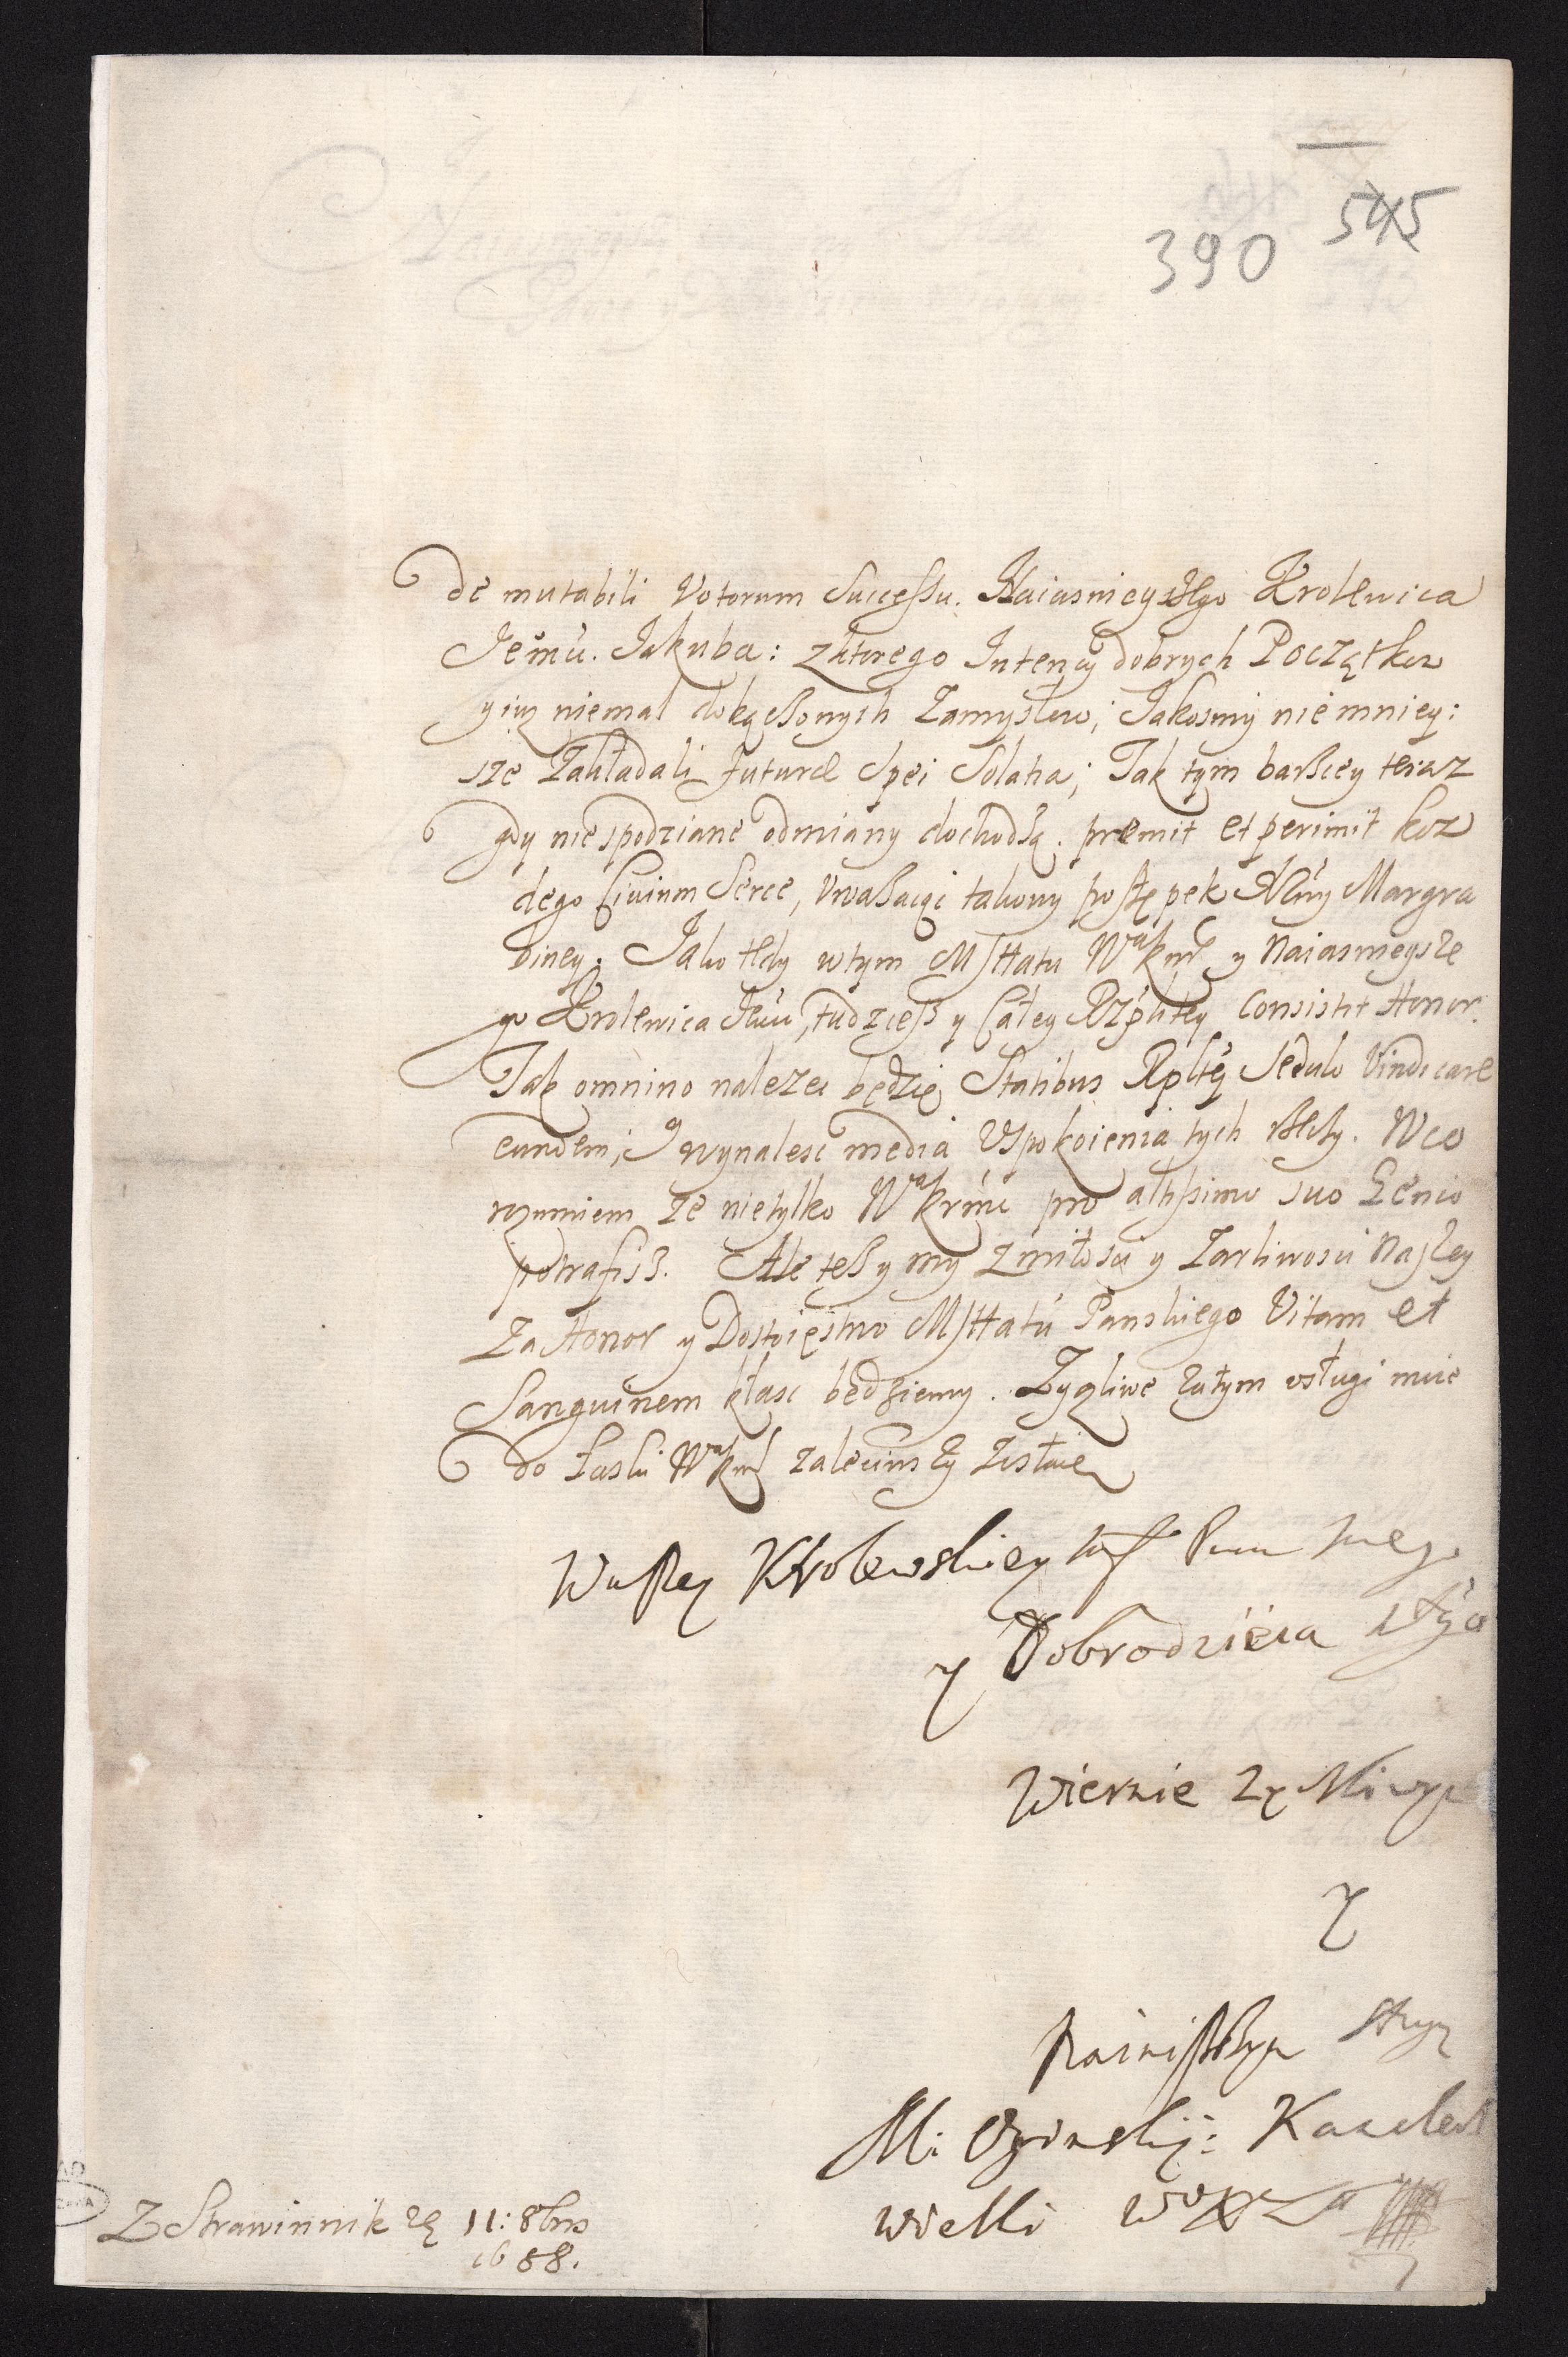 545
390
de mutabili Votorum Successu. Naiasnieyszego Krolewica
Jemu. Jakuba: z ktorego Intency dobrych Początkow
y iuz niemal dokączonych Zamysłow; Jakosmy nie mniey:
sze Zakładali futuræ Spei Solatia; Tak tym barszey teraz
gdy niespodziane odmiany dochodzą. premit et perimit koz
dego Civium Serce, Uwazaiąc takowy postępek Margra
biney. Jako tedy w tym Msttatu WaKrm y Naiasnieysze
go Krolewica Jmu, tudziesz y Całey Rzplitey Consistit Honor.
Tak omnino nalezec będzie Statibus Rpltey Sedulo Vindicare
eundem; y wynalesc media Uspokoienia tych. W co
rozumiem ze nie tylko WaKrmc pro altissimo suo Genio
potrafisz. Ale tesz y my z miłosci y Zarliwosci Naszey
Za Honor y Dostoięstwo Msttatu Panskiego Vitam et
Sanguinem kłasc będziemy. Zyczliwe zatym usługi moie
do Łaski WaKrm zaleciwszy zostaię
Waszey Krolewskiey Pana mego
y Dobrodzieia
Wiernie Zy
y
nainiszszym
M: Oginskij: Kanclerz
Wielki
Z Strawinnik 11: 8bris
1688.